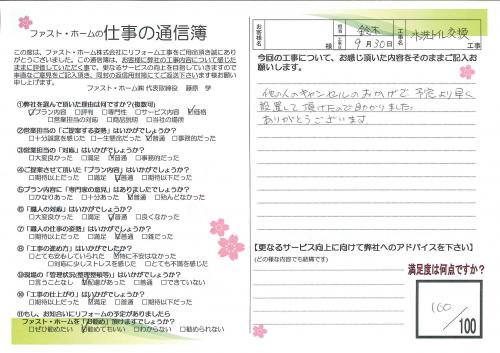 ファスト・ホームの仕事の通信簿
この度は、ファスト・ホーム株式会社にリフォーム工事をご用命頂き誠にあり
がとうございました。この通信簿は、お客様に弊社の工事内容について感じた
ままに評価していただく事で、更なるサービスの向上を目指していきますので
率直なご意見をご記入頂き、同封の返信用封筒にてご返送下さいます様お願い
申し上げます。
ファスト・ホーム㈱ 代表取締役 藤原 学
①弊社を選んで頂いた理由は何ですか？(複数可)
□プラン内容 □評判 □専門性 □サービス内容 □価格
□営業担当の対応 □商品説明 □当社の場所
②営業担当の「ご提案する姿勢」はいかがでしょうか？
□十分誠意を感じた □一生懸命だった □普通 □事務的だった
③営業担当の「対応」はいかがでしょうか？
□大変良かった □満足 □普通 □事務的だった
④ご提案させて頂いた「プラン内容」はいかがでしょうか？
□期待以上だった □満足 □普通 □期待以下だった
⑤プラン内容に「専門家の意見」はありましたでしょうか？
□かなりあった □十分あった □普通 □殆んどなかった
⑥「職人の対応」はいかがでしょうか？
□大変良かった □満足 □普通 □良くなかった
⑦「職人の仕事の姿勢」はいかがでしょうか？
□期待以上だった □満足 □普通 □雑だった
⑧「工事の進め方」はいかがでしたか？
□とても安心していられた □特に不安はなかった
□対応に少しストレスを感じた □とても不満を感じた
⑨現場の「管理状況(整理整頓等)」はいかがでしょうか？
□言うことなし □配慮があった □普通 □できていない
⑩「工事の仕上がり」はいかがでしょうか？
□期待以上だった □満足 □普通 □期待以下だった
⑪もし、お知合いにリフォームの予定がありましたら
ファスト・ホームを「お勧め」頂けますでしょうか？
□ぜひ勧めたい □勧めてもいい □わからない □勧められない
お客様名
様
担当 鈴木
工事日 9月30日
工事名 水洗トイレ交換
工事
今回の工事について、お感じ頂いた内容をそのままご記入お
願いします。
他の人のキャンセルのおかげで、予定より早く
設置して頂けたので助かりました。
ありがとうございます
【更なるサービス向上に向けて弊社へのアドバイスを下さい】
(どの様な内容でも結構です)
満足度は何点ですか？
100
/100